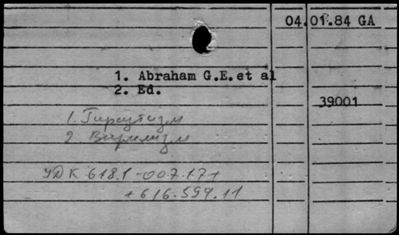 04.01.84 GA
1. Abraham G.E. et al
2. Ed.
39001
1. Гирсутизм
2 Вирилизм
УДК 618.1-007.171
+616.594.11